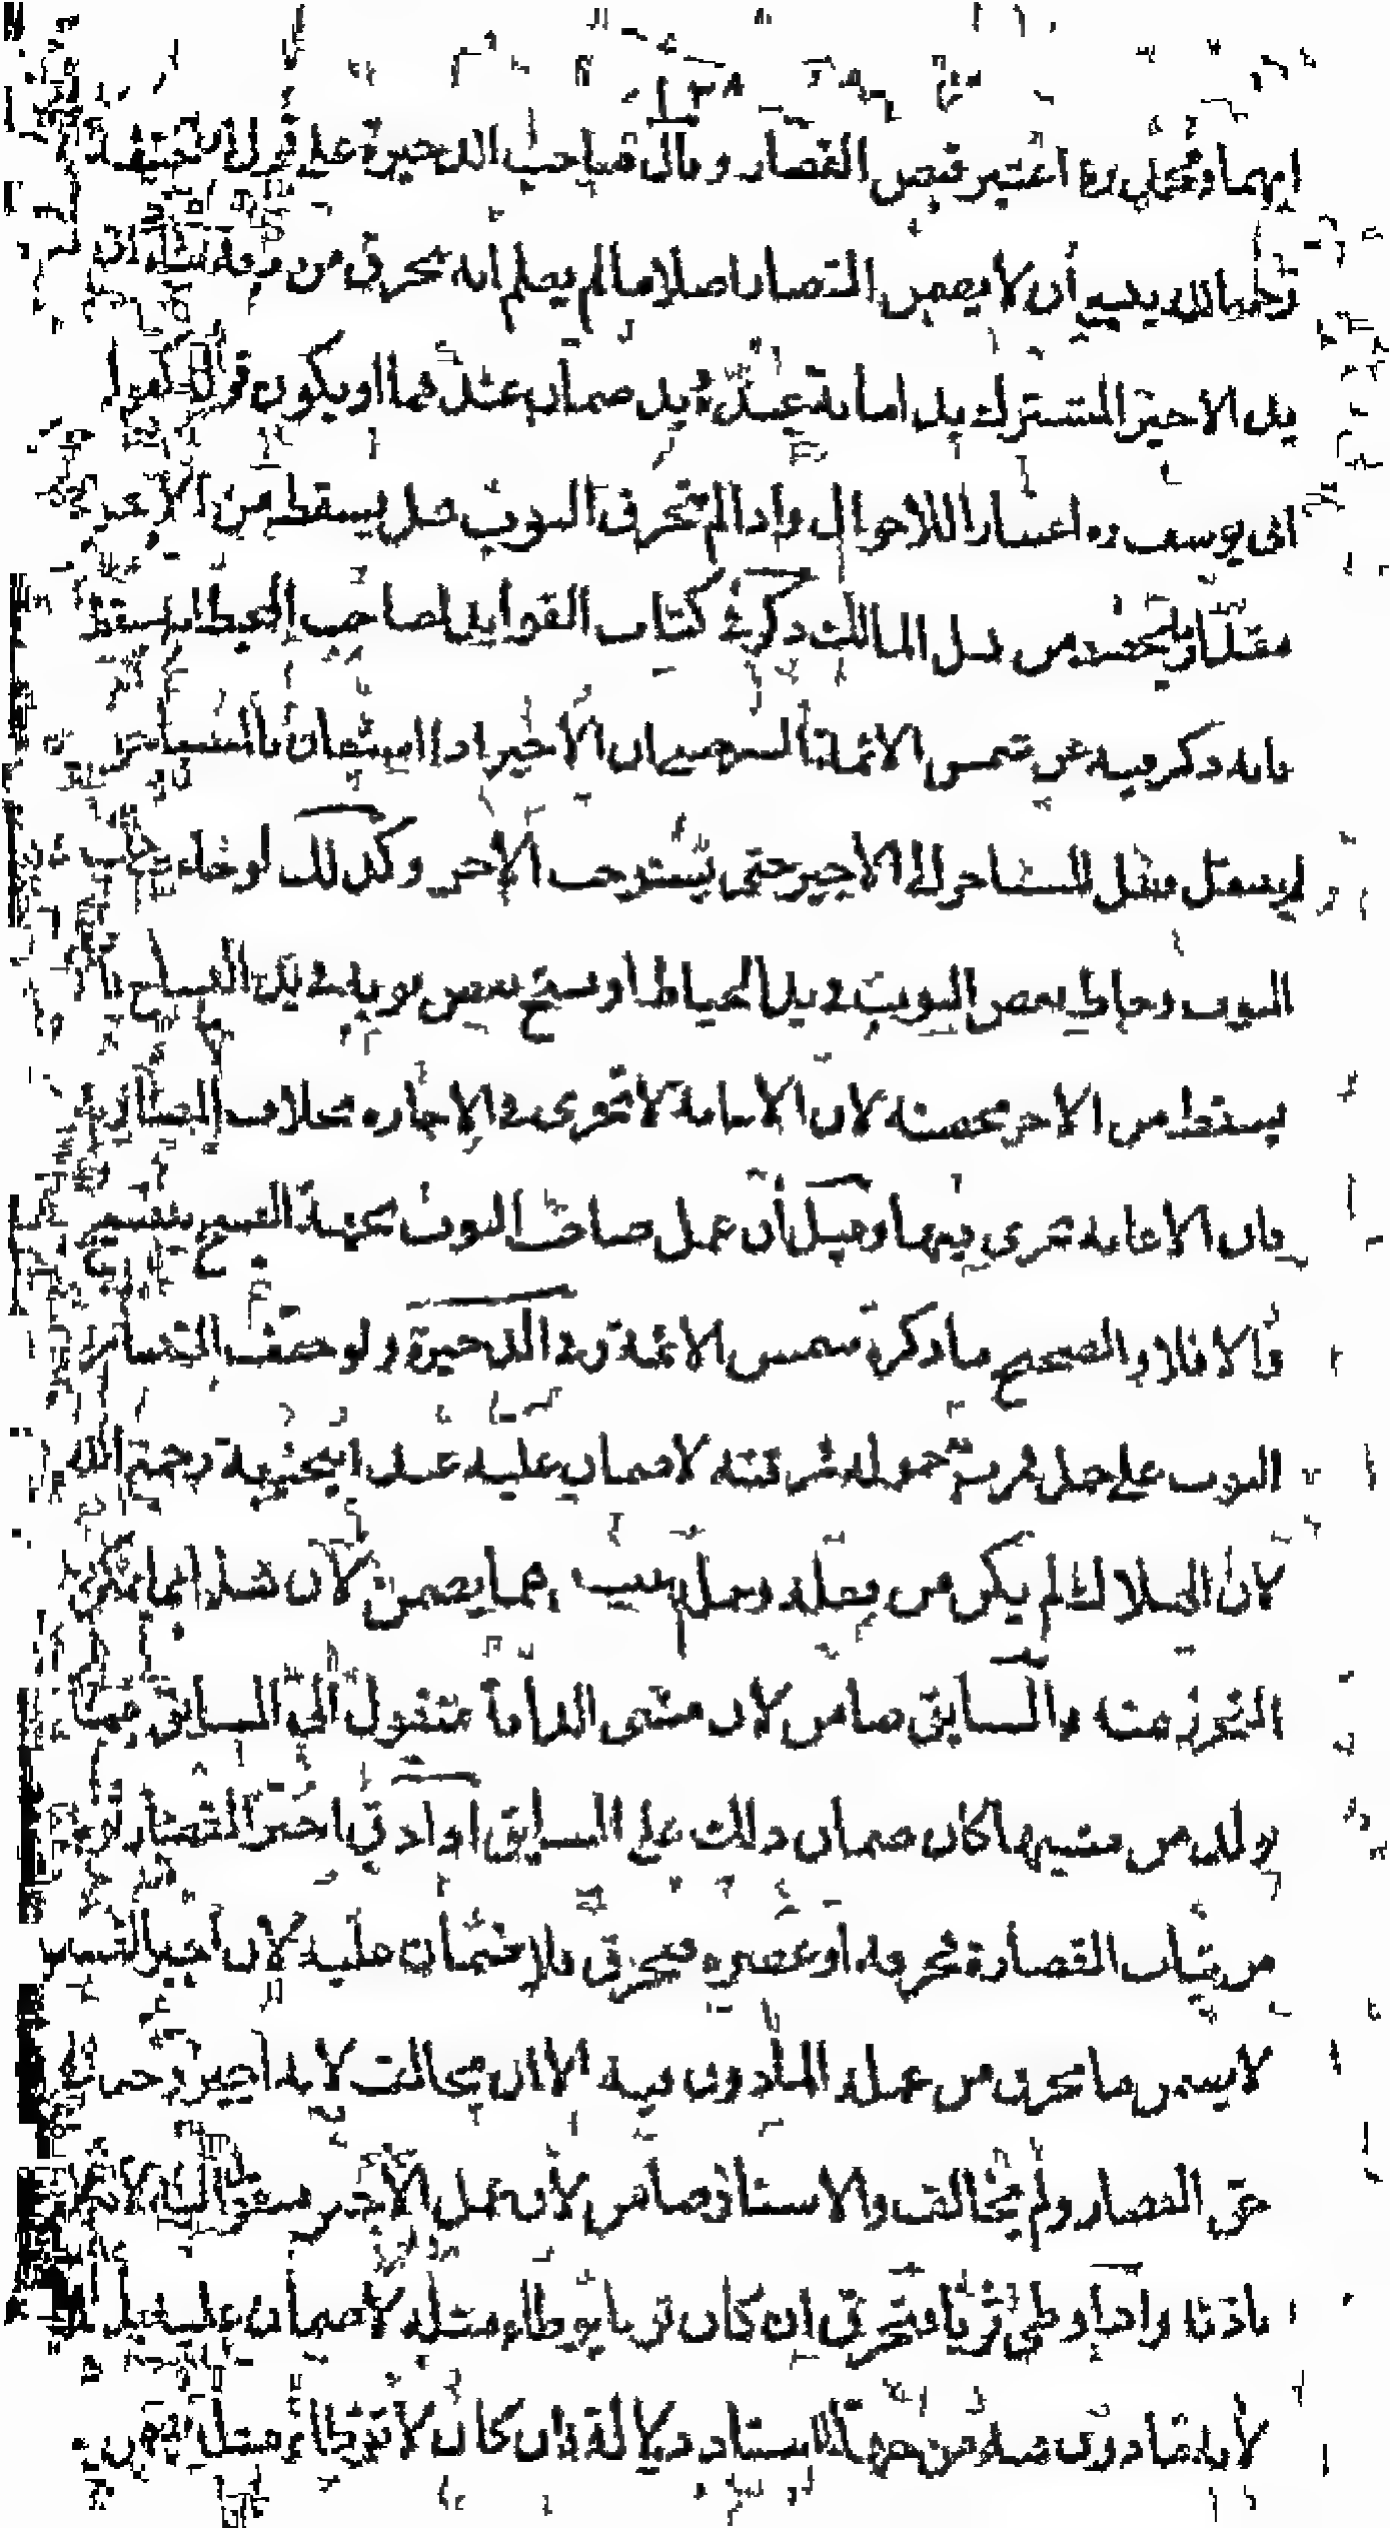 ايهما ومحمد ره اعتبر قبض القصار وقال صاحب الذخيرة على قول ابى حنيفة
رحمه الله ينبغي أن لا يضمن القصار اصلا ما لم يعلم انه تخرق من دقه لأن
يد الاجير المشترك يد امانة عنده يد ضمان عندهما او يكون قول كقول
ابى يوسف ره اعتبارا للاحوال واذا لم يتخرق الثوب هل يسقط من الأجر
مقدار ما يخصه من عمل المالك ذكر في كتاب الفوايد لصاحب المحيط انه يسقط
فانه ذكر فيه عن شمس الائمة السرخسي ان الأجير اذا استعان بالمستاجر
ينتقل فعل المستاجر الى الاجير حتى يستوجب الاجر وكذلك لو جاء صاحب
الثوب وخاط بعض الثوب في يد الخياط او نسج بعض ثوبه في يد النساج فانه
يسقط من الاجر بحصته لان الاعانة لا تجرى في الاجارة بخلاف المضاربة
فان الاعانة تجرى فيها وقيل أن عمل صاحب الثوب بجهة الفسخ ينفسخ
والا فلا والصحيح ما ذكره شمس الائمة وفي الذخيرة ولو جفف القصار
الثوب على حبل فمرت حمولة فخرقته لا ضمان عليه عند ابيحنيفة رحمة الله
لان الهلاك لم يكن من فعله وعندهما يضمن لأن هذا مما يمكن
التحرز عنه والسايق ضامن لان مشى الدابة منقول الى السايق فيما
تولد من مشيها كان ضمان ذلك على السايق اذا دق اجير القصار ثوبا
من ثياب القصارة فخرقه او عصره فتخرق فلا ضمان عليه لان اجير القصار
لا يضمن ما تخرق من عمله المأذون فيه الا ان يخالف لانه اجير وحد في
حق القصار ولم يخالف والاستاذ ضامن لأن عمل الأجير منقول اليه لانه
باذنه واذا وطى ثوبا فتخرق ان كان ثوبا يوطاء مثله لا ضمان عليه
لأنه مأذون فيه من جهة الاستاد دلالة وان كان لا توطاء مثله يضمن